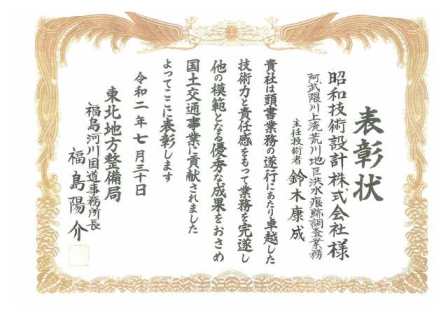 表彰状
昭和技術設計株式会社 様
阿武隈川上流荒川地区洪水痕跡調査業務
主任技術者 鈴木康成
貴社は頭書業務の遂行にあたり卓越した
技術力と責任感をもって業務を完遂し
他の模範となる優秀な成果をおさめ
国土交通事業に貢献されました
よってここに表彰します
令和二年七月三十日
東北地方整備局
福島河川国道事務所長
福島陽介